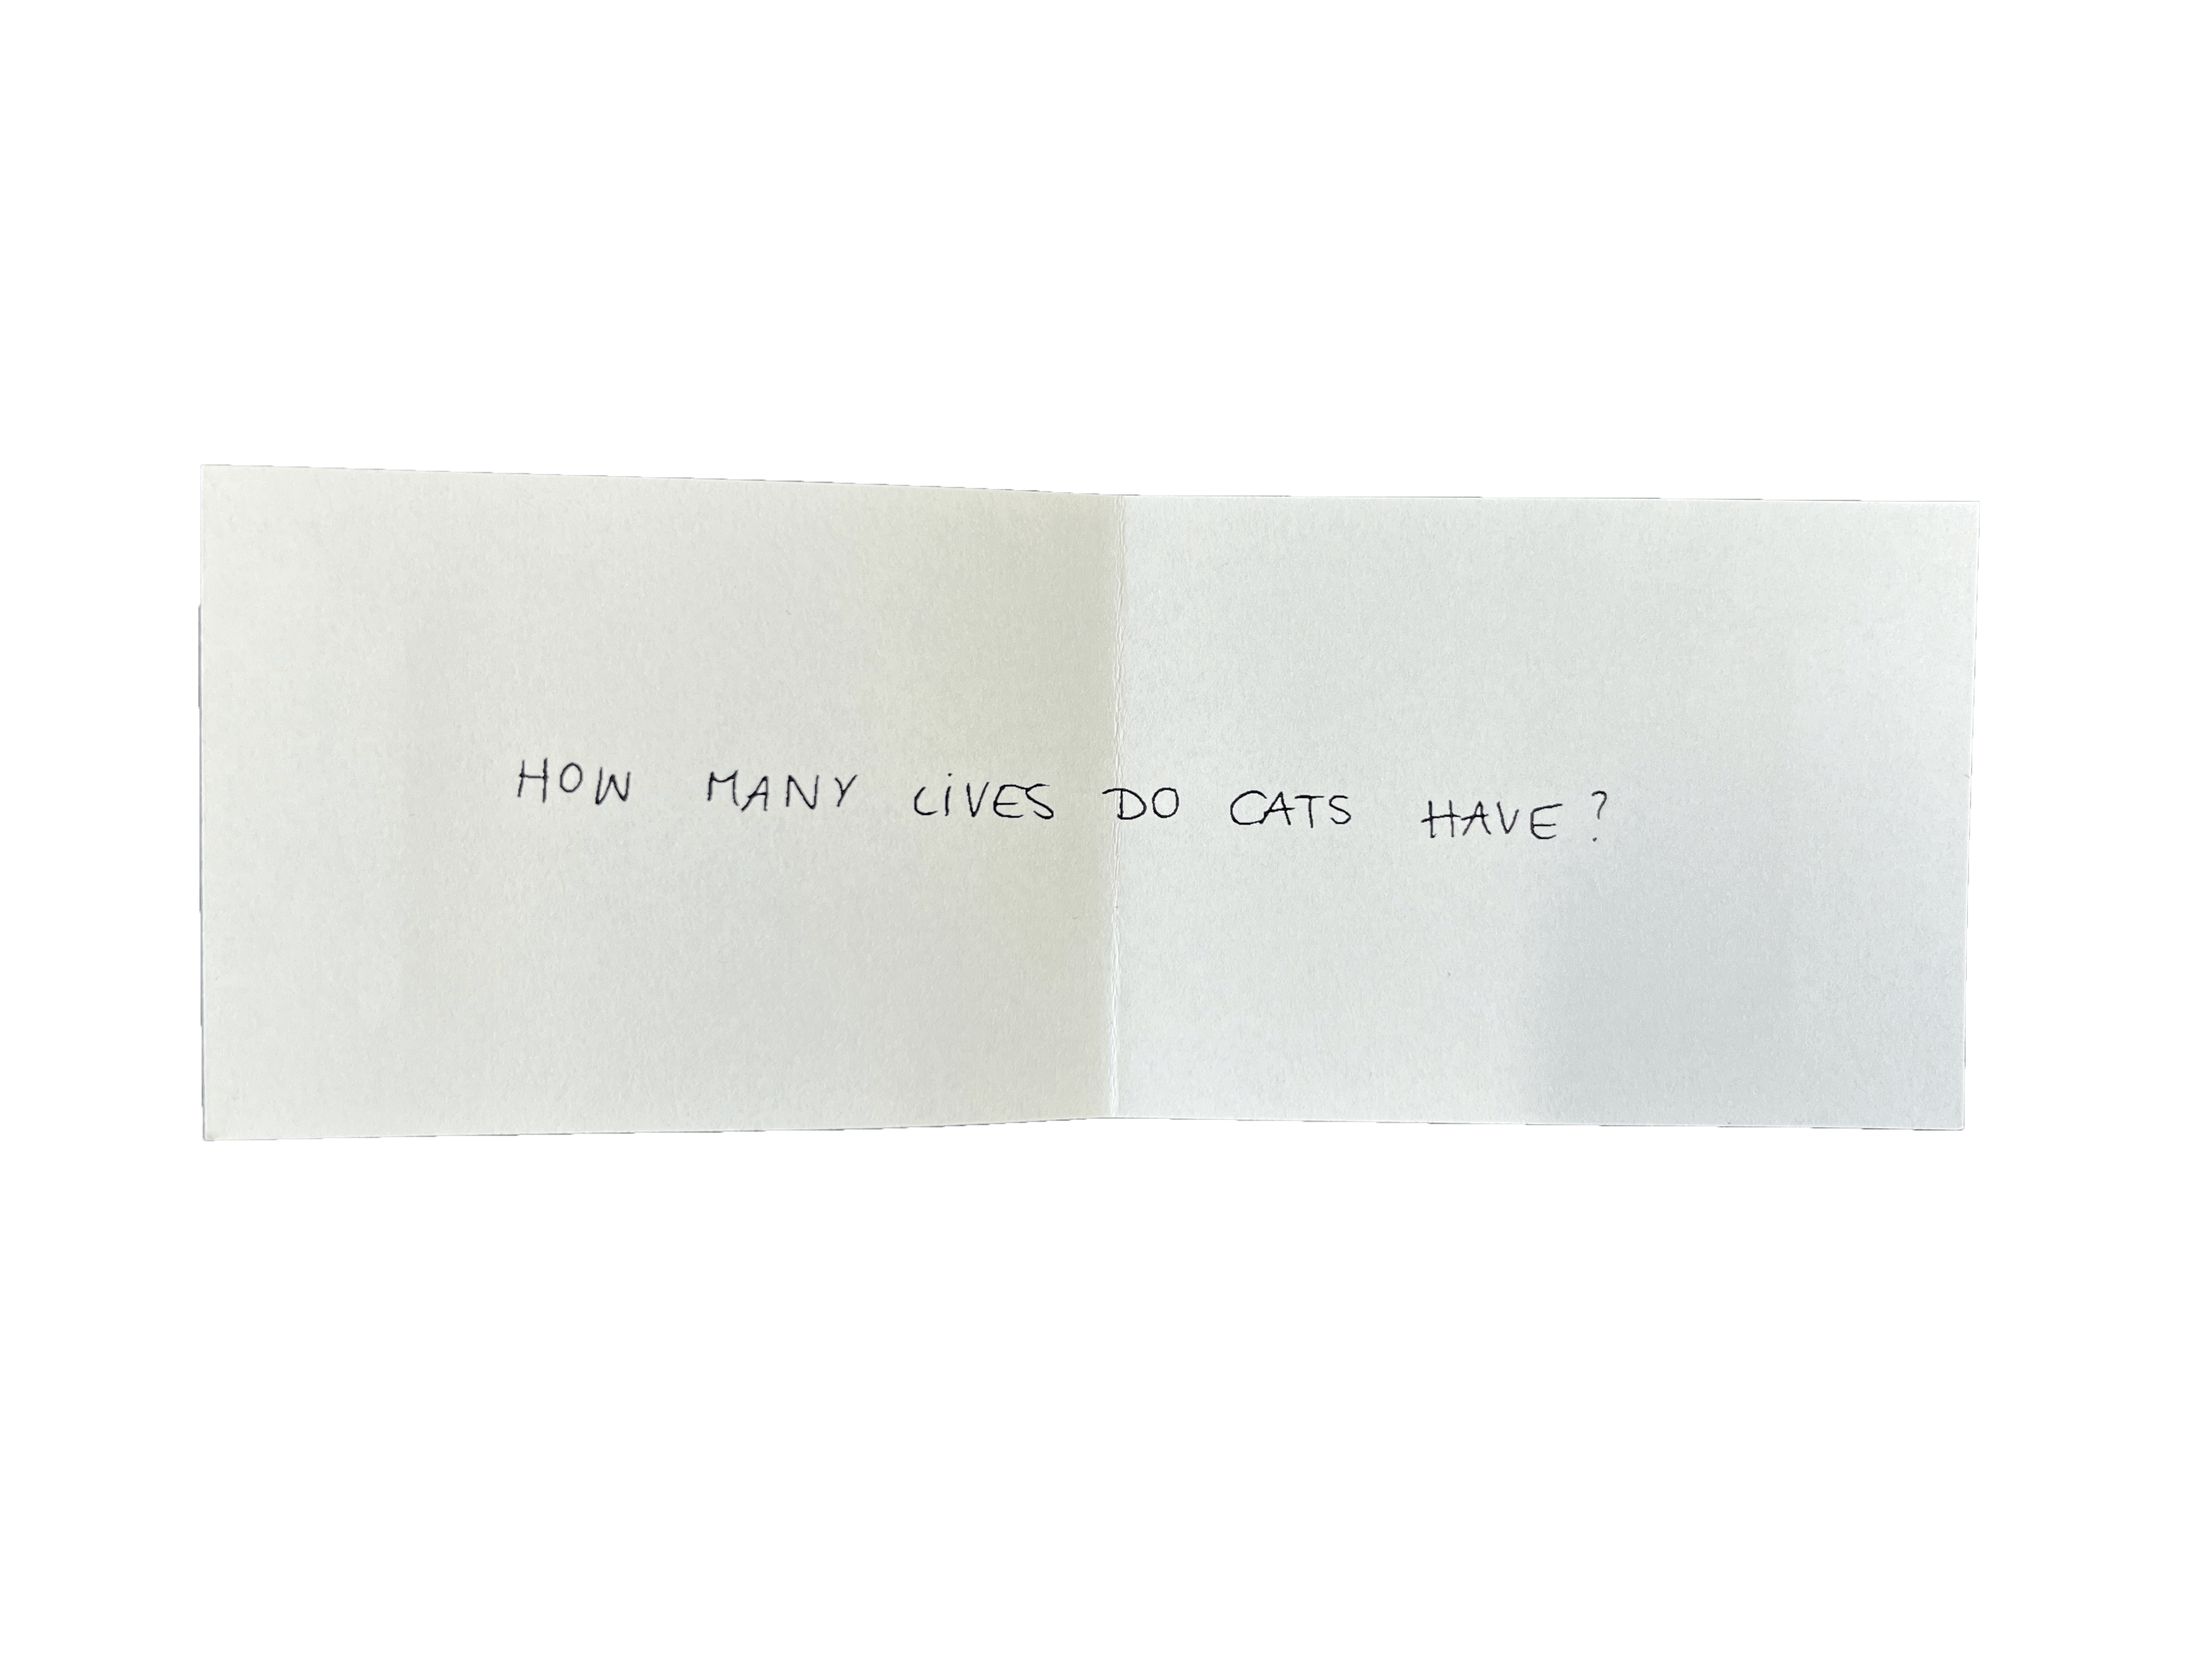 HOW MANY LiVES DO CATS HAVE?